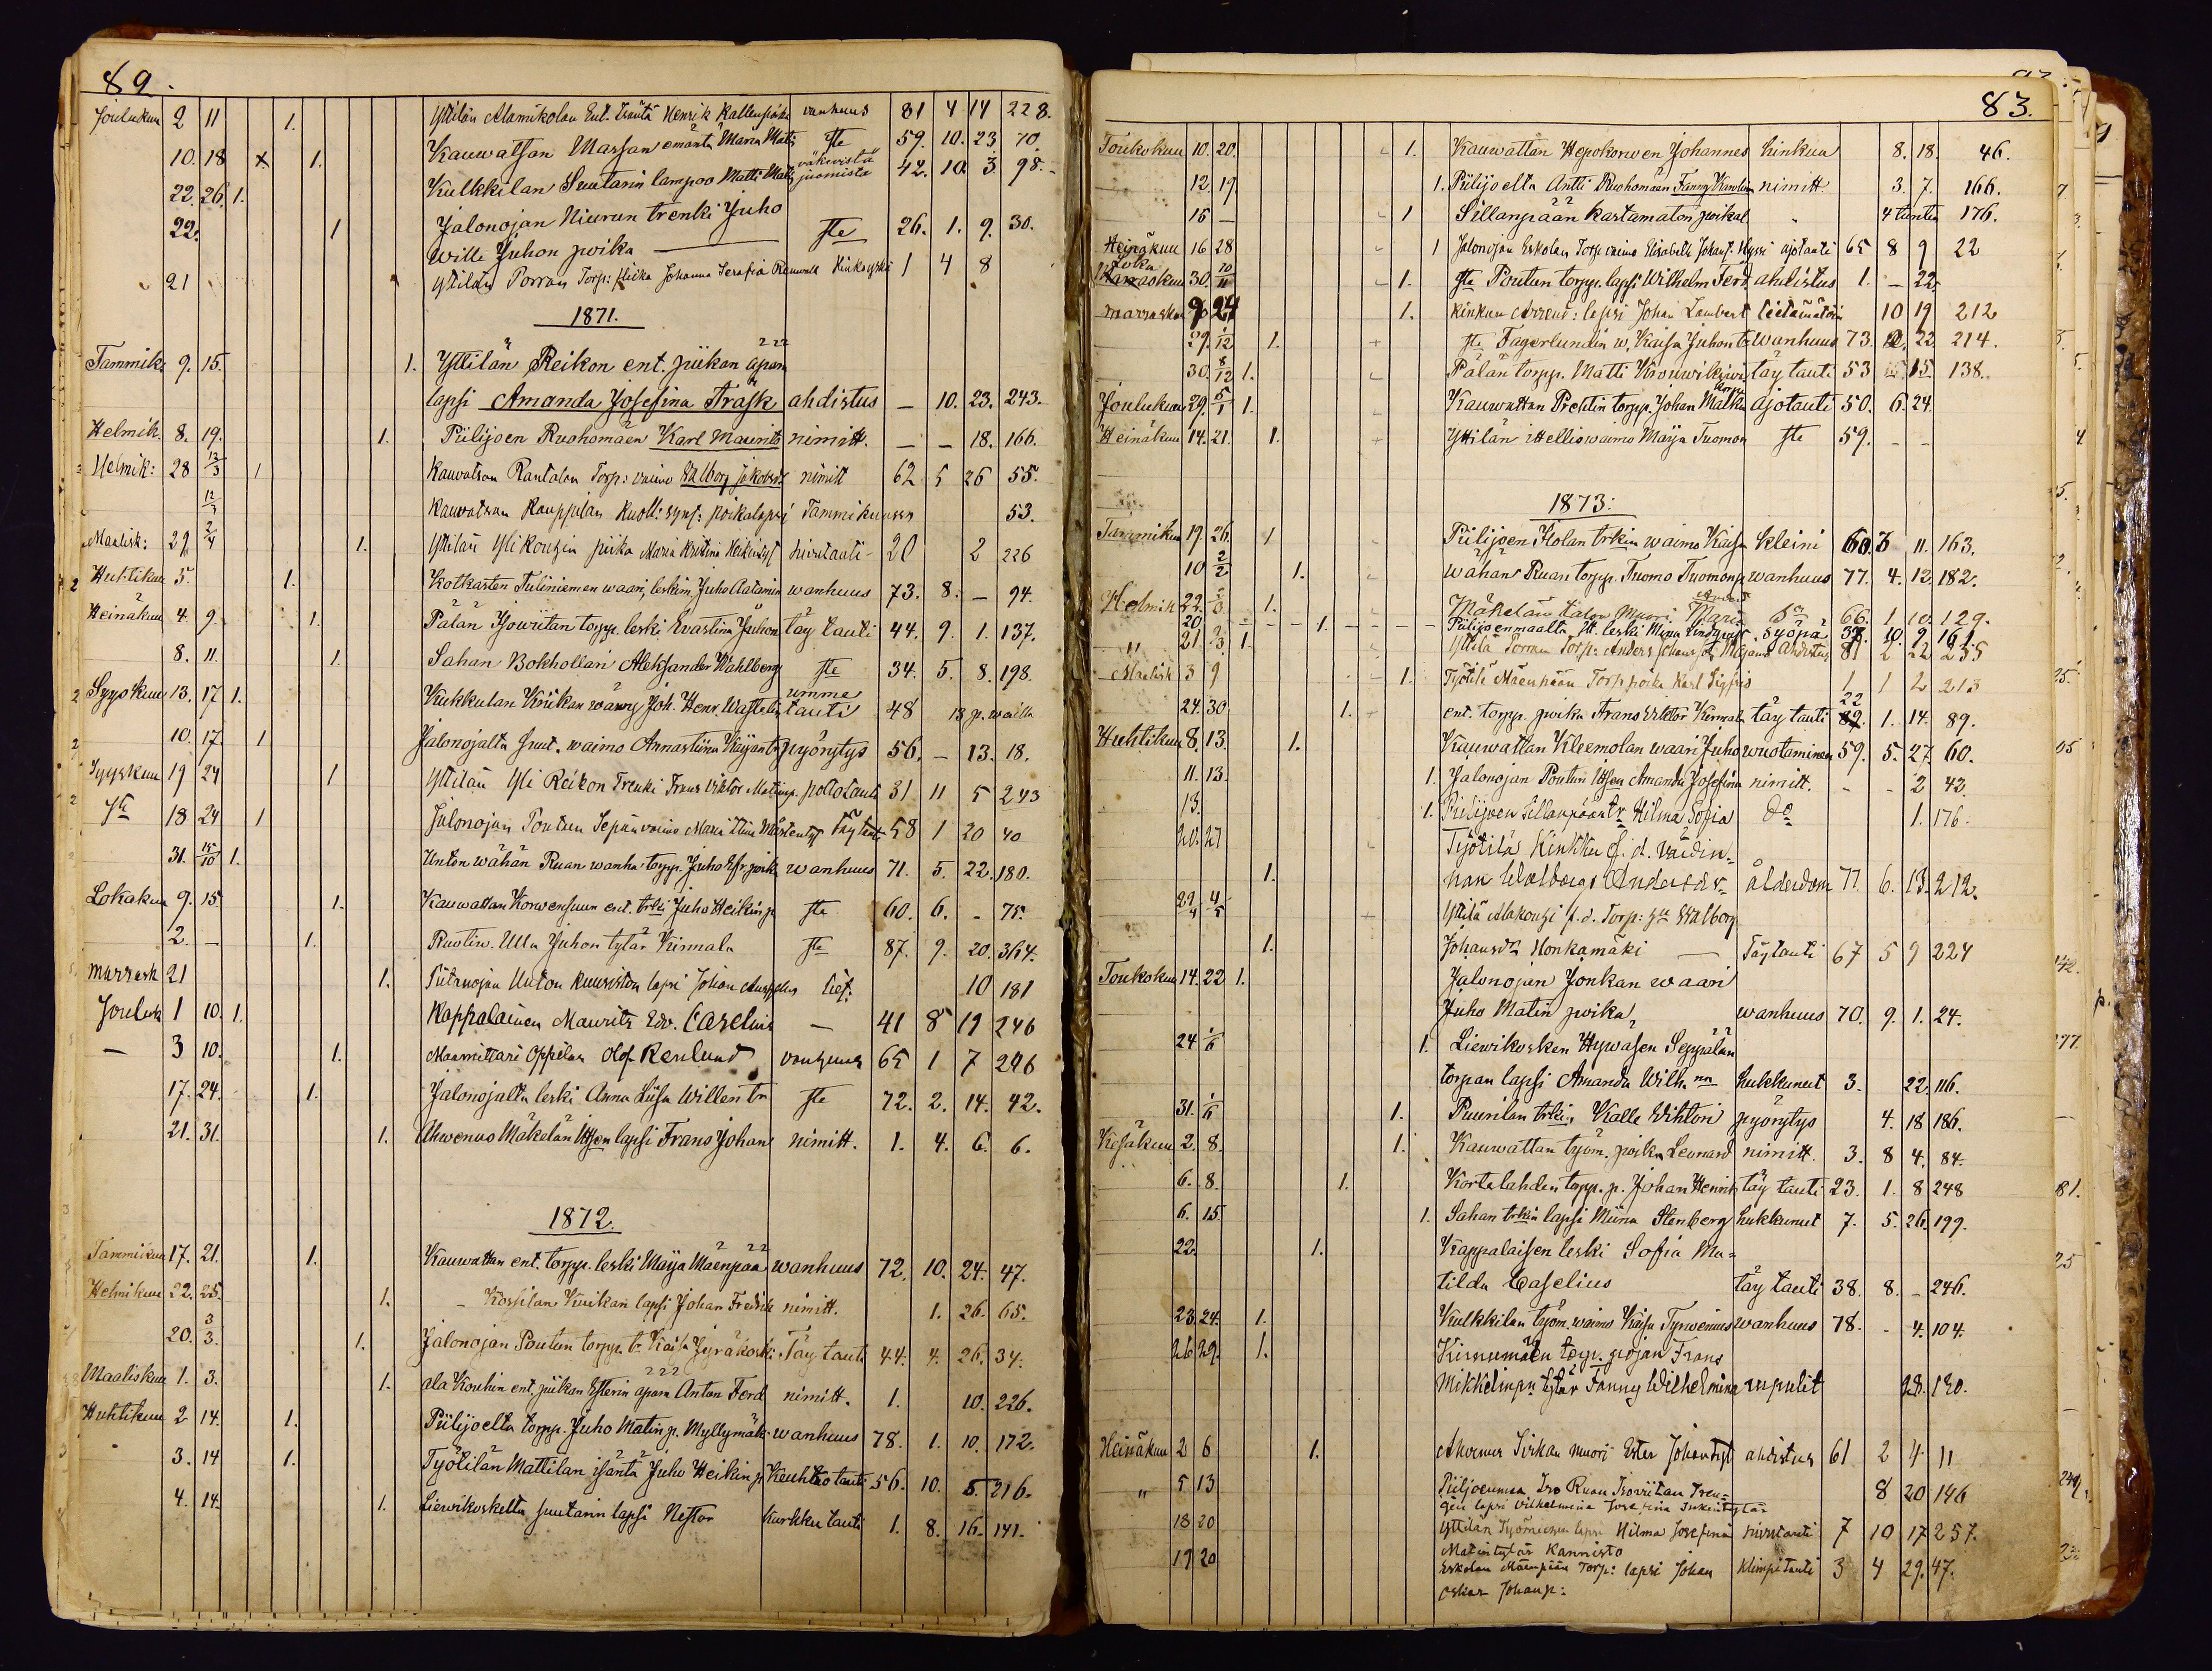 89.
Joulukuu 2 11 1. Yttilän Alamikolan Ent. Isäntä Henrik vanhuus 81 4 14 228.
10. 18 x 1. Kauwatsan Marsan emäntä Maria Matt. ste 59. 10. 23. 70.
22. 26. 1. Kulkkilan Suutarin lampoo Matti Matt. väkevistä juomista 42. 10. 3. 98.
22. 1 Jalonojan Niurun trenki Juho
Wille Juhon poika — ste 26. 1. 9. 30.
21 Yttilän Porran Torp: Johanna Serafia 1 4 8
1871.
Tammik: 9. 15. 1. Yttilän Reikon ent. piikan äpärä
lapsi Amanda Josefina Träsk ahdistus — 10. 23. 243.
Helmik. 8. 19. 1. Piilijoen Ruohomäen Karl Maurits nimitt. — — 18. 166.
Helmik: 28 12/3 1 Kauwatsan Rantalan Torp: vaimo Walborg Jakobsd nimitt 62 5 26 55.
12/3 Kauwatsan Kauppilan Kuoll: synt: poikalapsi Tammikuussa 53.
Maalisk: 29 2/4 1. Yttilän Ylikouhin piika Maria Kristina 20 2 226
Huhtikuu 5. 1. Kotkasten Tuliniemen waari, leskim. Juho Aatamin wanhuus 73. 8. — 94.
Heinäkuu 4. 9. 1. Pälän Isowiitan torpp. leski Evastina Juhon täy tauti 44. 9. 1. 137.
8. 11. 1. Sahan Bokhollari Aleksander Wahlberg ste 34. 5. 8. 198.
Syyskuu 13. 17 1. Kukkulan Krükan wäwy Joh. Henr. umme tauti 48 13 p. wailla
10. 17. 1 Jalonojalta Gust. waimo Annastiina Kaijantr pyörytys 56. — 13. 18.
Syyskuu 19 24 1 Yttilän Yli Reikon Trenki Frans Viktor Matinp. polotauti 31 11 5 243
18 24 1 Jalonojan Poutun Sepän vaimo Maria Stiina Mårtentyt Täytauti 58 1 20 40
31. 15/10 1. Unton wähän Ruan wanha torpp. Juho poika wanhuus 71. 5. 22. 180.
Lokakuu 9. 15 1. Kauwattan Korwensuun ent. trki Juho Heikinp. ste 60. 6. - 75.
2. — 1. Ruotiw. Ulla Juhon tytär Kinnala ste 87. 9. 20.
Marrask 21 1. Unton lapsi Johan Augustus 10 181
Joulusk 1 10. 1. Kappalainen Maurits Edv. Caselius — 41 8 19 246
— 3 10. 1. Maamittari Oppilas Olof Renlund vanhuus 65 1 7 246
17. 24. 1. Jalonojalta leski Anna Liisa Willen tr ste 72. 2. 14. 42.
21. 31. 1. Ahwenus Mäkelän lapsi Frans Johan nimitt. 1. 4. 6. 6.
1872.
Tammikuu 17. 21. 1. Kauwattan ent. torpp. leski Maija Mäenpää wanhuus 72. 10. 24. 47.
Helmikuu 22. 25. 1. - Kossilan Kuikan lapsi Johan Fredrik nimitt. 1. 26. 65.
20. 3/3. 1. Jalonojan Poutun torpp. tr. Kaisa Jyräkoski Täy tauti 44. 4. 26. 34.
Maaliskuu 1. 3. 1. ala Kouhin ent. piikan Esterin äpärä Anton Ferd nimitt. 1. 10. 226.
Huhtikuu 2 14. 1. Piilijoelta torpp. Juho Matinp. Myllymäk. wanhuus 78. 1. 10. 172.
3. 14 1. Työtilän Mattilan isäntä Juho Heikinp. Keuhko tauti 56. 10. 5. 216.
4. 14. 1. Liewikoskelta suutarin lapsi Nestor Kurkku tauti 1. 8. 16. 141.
83.
Toukokuu 10. 20. 1. Kauwattan Hepokorwen Johannes hinkua 8. 18. 46.
12. 19 1. Piilijoelta Antti Ruohomäen Fanny Karolin nimitt 3. 7. 166.
16 — 1 Sillanpään kastamaton poikal. " 4 tuntia 176.
Heinäkuu 16 28 1 Jalonojan Eskolan Torp vaimo Elisabeth ajotauti 65 8 9 22
Loka
Marraskuu 30. 10/11 1. ste Poutun torpp. lapsi Wilhelm Ferd. ahdistus 1. — 22.
marrask 9 24 1. Kinkun Arrend: lapsi Johan Lambert tietämätön 10 19 212
29. 1/12 1. ste Fagerlundin w. Kaisa Juhon tr wanhuus 73. 22 214.
30. 8/12 1. Pälän torpp. Matti täy tauti 53 15. 138.
Joulukuu 29. 5/1 1. Kauwattan Prehtin torpp. Johan ajotauti 50. 6. 24.
Heinäkuu 14. 21. 1. Yttilän itellis waimo Maija Tuomon ste 59. - -
1873.
Tammikuu 19. 26. 1 Piilijoen trkin waimo Kaisa kleini 60. 3 11. 163.
10 2/2 1. wähän Ruan torpp. Tuomo Tuomonp. wanhuus 77. 4. 12. 182.
Helmik 22. 1. Mäkelän talon Muori Maria do 66. 1 10. 129.
20 1. Piilijoenmaalta itt. leski Miina Lindqvist syöpä 37. 10. 9. 161.
" 21. 1. Yttilä Porran Torp: Anders ahdistus 81 2 22 235
Maalisk 3 9 1. Työtilä Mäenpään Torp poika Karl Sigfrid 1 1 2 213
24. 30 1. ent. torpp. poika Frans Viktor Kinnala täy tauti 22 1. 14. 89.
Huhtikuu 8. 13. 1. Kauwattan Kleemolan waari Juho wuotaminen 59. 5. 27. 60.
11. 13. 1. Jalonojan Poutun Amanda Josefiina nimitt. - - 2 42.
13. 1. Piilijoen Sillanpään tr Hilma Sofia do 1. 176.
20. 27 Työtilä Kinkku f. d. värdin-
1. nan Walborgs Andersdr. ålderdom 77. 6. 13. 212.
29/4 4/5 Yttilä Alakouhi f. d. Torp: Walborg
1. Johansdr Honkamäki — Täytauti 67 5 9 224
Toukokuu 14. 22 1. Jalonojan Jonkan waari
Juho Matin poika wanhuus 70. 9. 1. 24.
24 1/6 1. Liewikosken Hywäsen Seppälän
torpan lapsi Amanda Wilh.na hukkunut 3. 22. 116.
31. 1/6 1. Puurilan trkin Kalle Wihtori pyörytys 4. 18 186.
Kesäkuu 2. 8. 1. Kauwattan työm. poika Leonard nimitt. 3. 8 4. 84.
6. 8. 1. Kortelahden torpp. p. Johan Henrik täy tauti 23. 1. 8 248
6. 15. 1. Sahan trkin lapsi Miina Stenberg hukkunut 7. 5. 26. 199.
22. 1. Kappalaisen leski Sofia Ma-
tilda Caselius täy tauti 38. 8. - 246.
23. 24. 1. Kulkkilan työm. waimo Kaisa Tyrwenius wanhuus 78. - 4. 104.
26 29. 1. Kinnumäen torp. pojan Frans
Mikkelinpn tytär Fanny Wilhelmina rupulit 28. 130.
Heinäkuu 2 6 1. Ahvenus Sirkan muori Ester Johantyt ahdistus 61 2 4 11
" 5 13 Piilijoenmaa Iso Ruan Isoviitan Tren-
gin lapsi Vilhelmina Josefiina 8 20 146
18 20 Yttilän Työmiehen lapsi Hilma Josefina 7 10 17 257.
Matintytär Kannisto
19 20 Eskolan Mäenpään Torp: lapsi Johan Klimpitauti 3 4 29. 47.
Oskar Johanp: